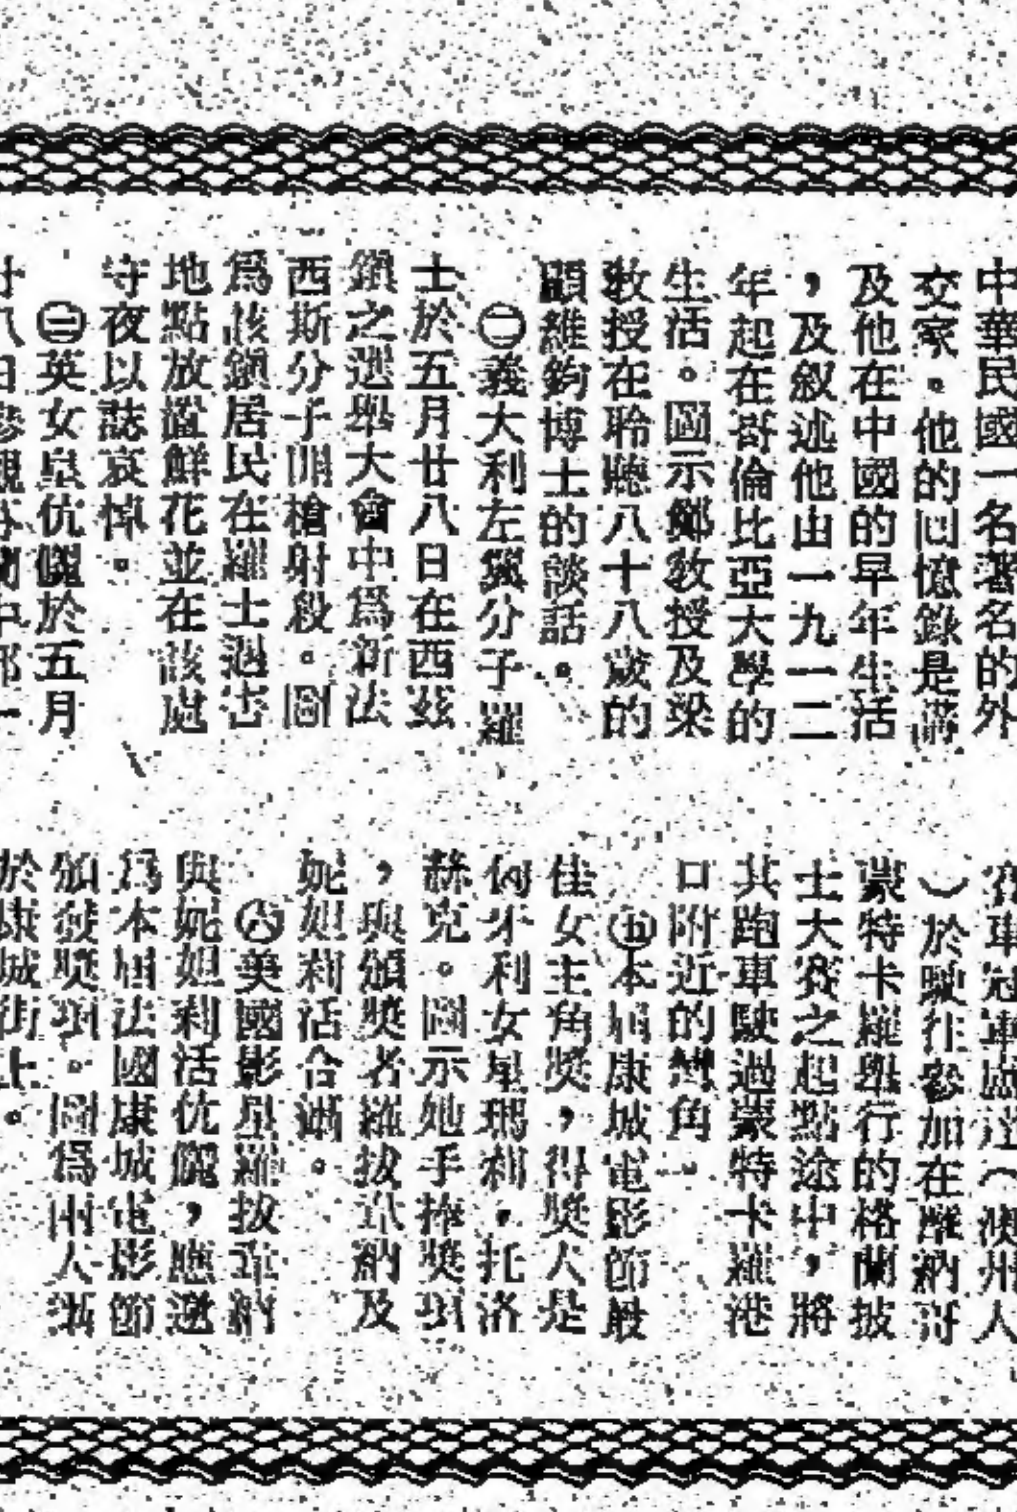 中華民國一名著名的外
交家。他的回憶錄是講
及他在中國的早年生活
，及叙述他由一九一二
年起在哥倫比亞大學的
生活。圖示鄭教授及梁
敎授在聆聽八十八歲的
顧維鈞博士的談話。
㊁義大利左翼分子羅
士於五月廿八日在西茲
鎮之選舉大會中爲新法
西斯分子開槍射殺。圖
爲該鎮居民在羅士遇害
地點放置鮮花並在該處
守夜以誌哀悼。
㊂英女皇伉儷於五月
廿八日參觀芬蘭中部一
賽車冠軍
（澳州人
）於駛往參加在摩納哥
蒙特卡羅舉行的格蘭披
士大賽之起點途中，將
其跑車駛過蒙特卡羅港
口附近的彎角。
㊄本屆康城電影節最
佳女主角獎，得獎人是
匈牙利女星瑪利，托洛
赫克。圖示她手捧獎項
，與頒獎者羅拔韋納及
妮妲利活合攝。
㊅美國影星羅拔韋納
與妮妲利活伉儷，應邀
爲本屆法國康城電影節
頒發獎項。圖爲兩人攝
於康城街上。